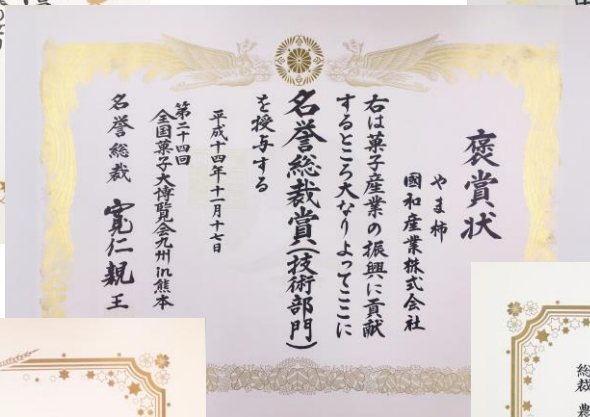 褒賞状
やま柿
國和産業株式会社
右は菓子産業の振興に貢献
するところ大なりよってここに
名誉総裁賞(技術部門)
を授与する
平成十四年十一月十七日
第二十四回
全国菓子大博覧会九州in熊本
名誉総裁 寛仁親王
総裁